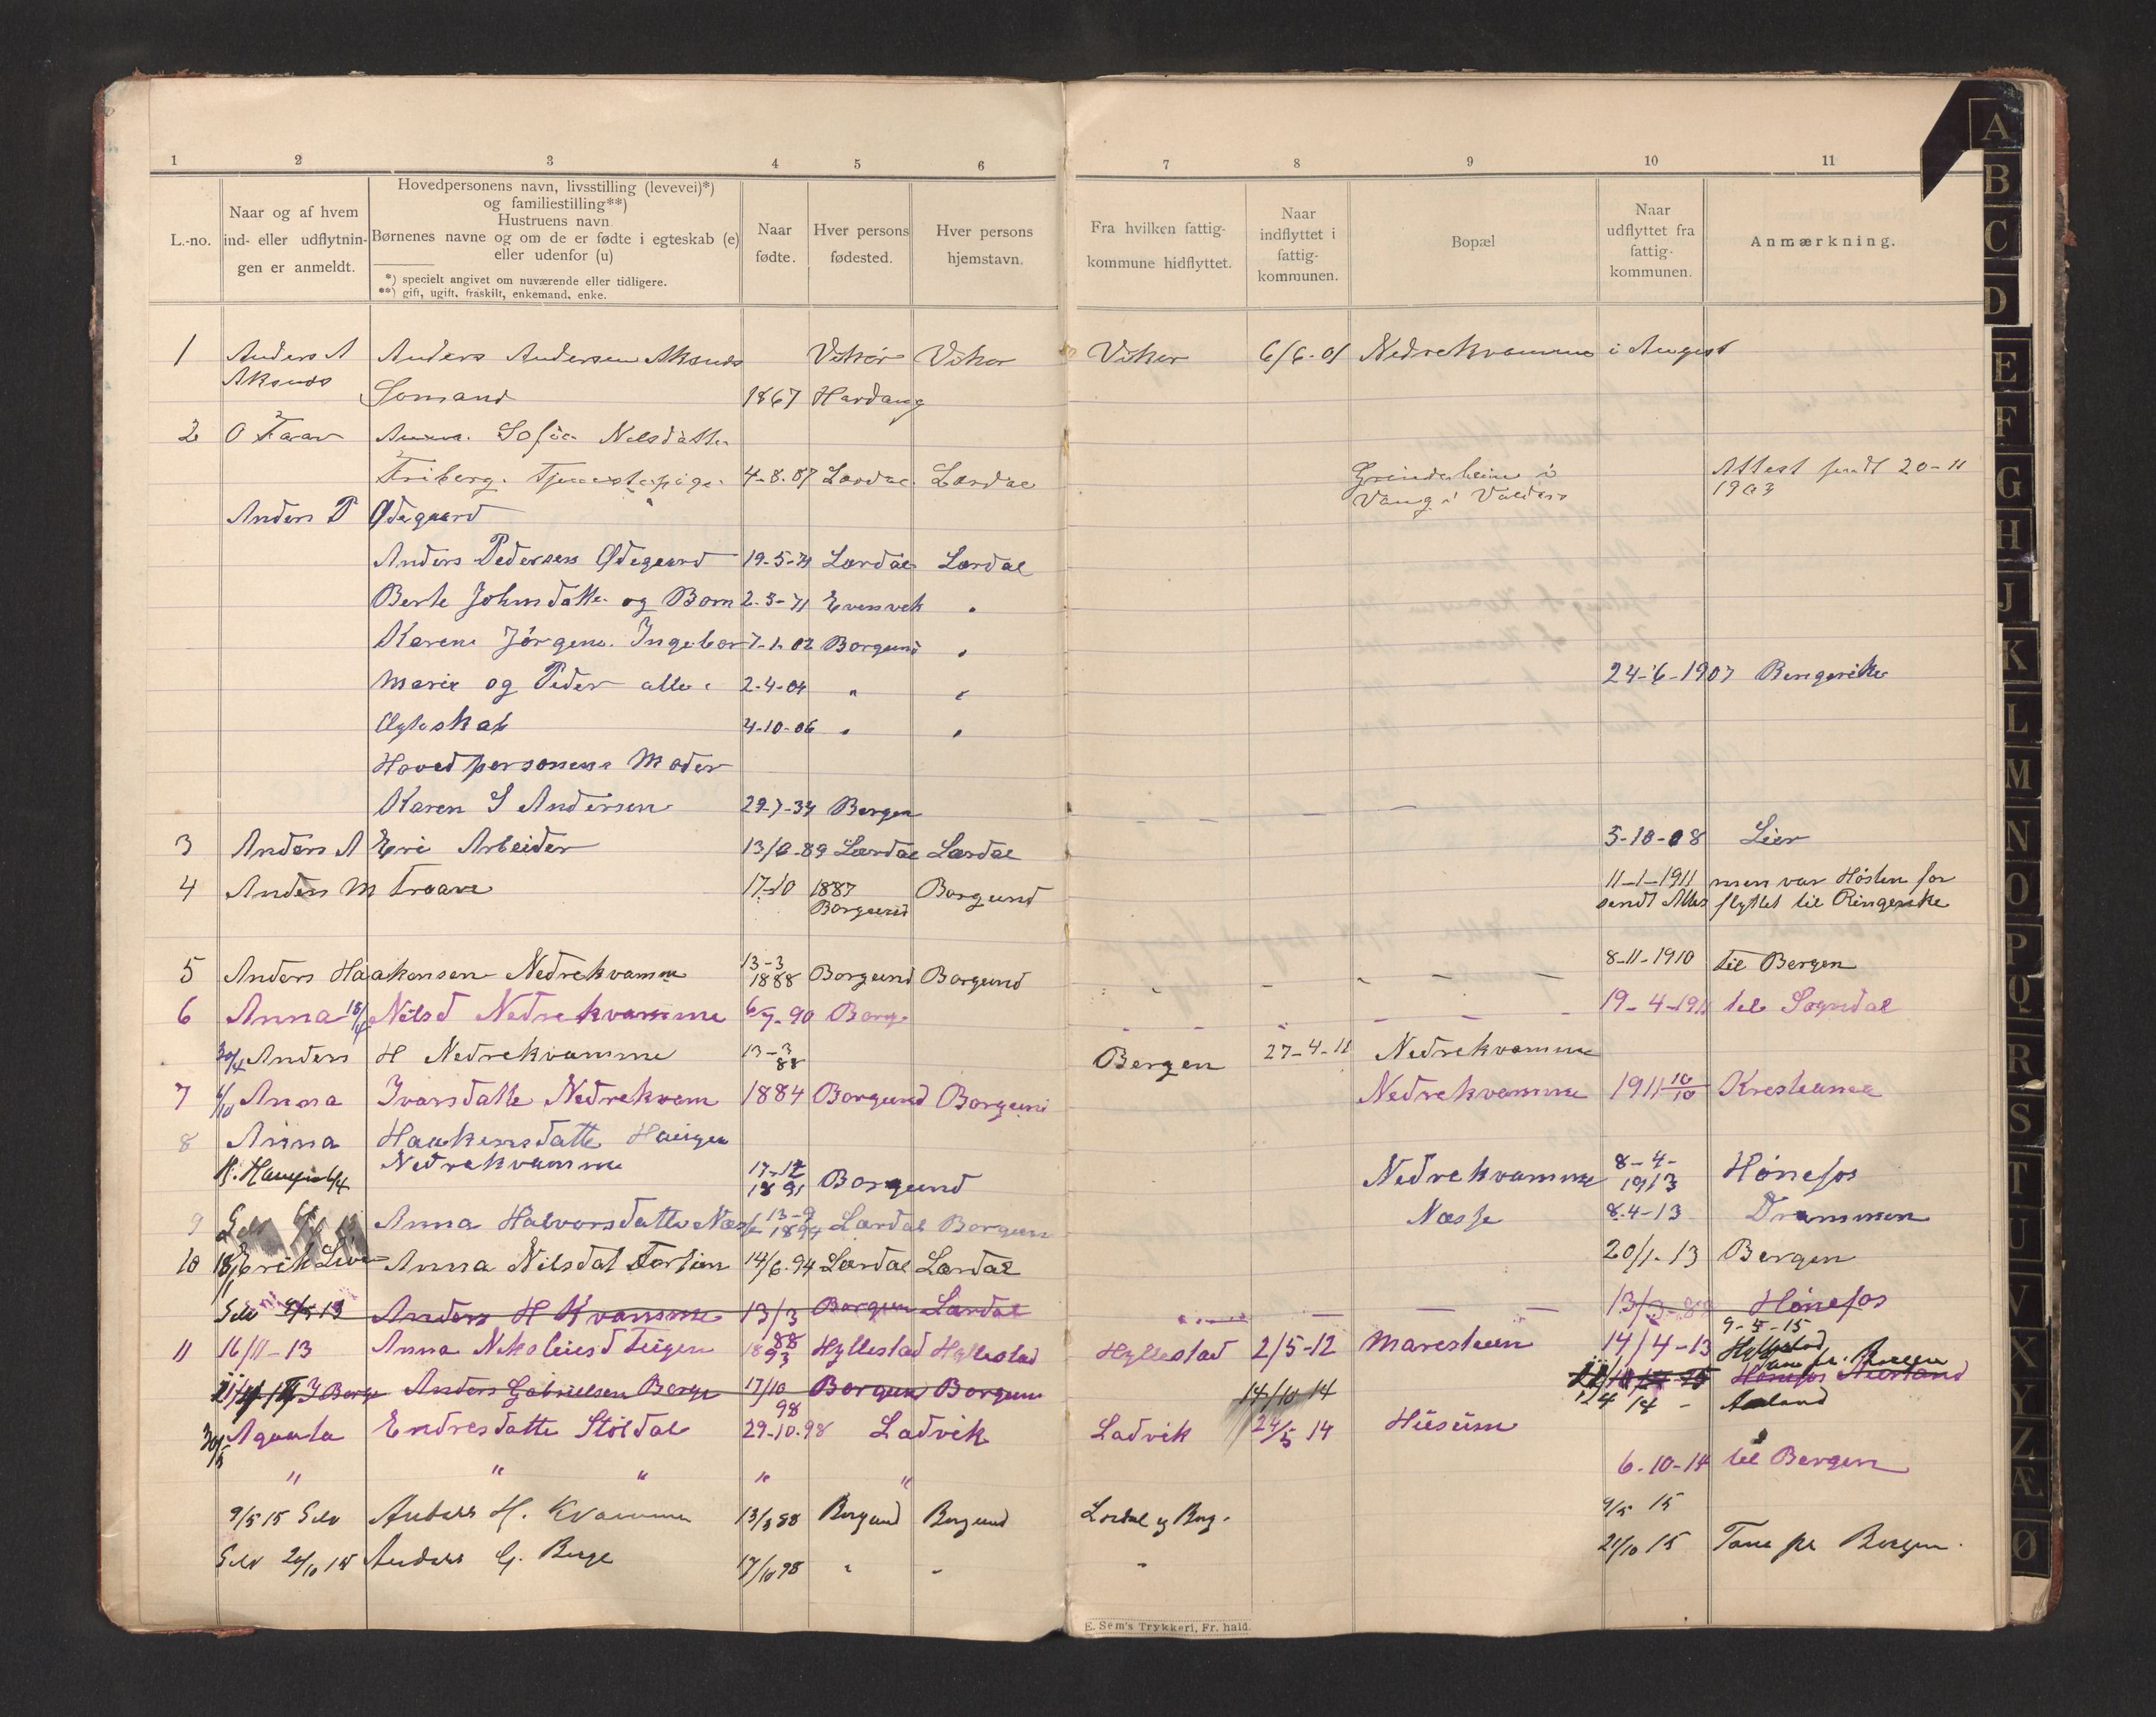 1 2 3 4 5 6 7 8 9 10 11
L.-no.
Naar og af hvem
ind- eller udflytnin-
gen er anmeldt.
Hovedpersonens navn, livsstilling (levevei)*)
og familiestilling**)
Hustruens navn
Børnenes navne og om de er fødte i egteskab (e)
eller udenfor (u)
*) specielt angivet om nuværende eller tidligere.
**) gift, ugift, fraskilt, enkemand, enke.
Naar
fødte.
Hver persons
fødested.
Hver persons
hjemstavn.
Fra hvilken fattig-
kommune hidflyttet.
Naar
indflyttet i
fattig-
kommunen.
Bopæl
Naar
udflyttet fra
fattig-
kommunen.
Anmærkning.
1 Anders A Anders Andersen Aksnes Vikør Vikør Vikør 6/6-01 Nedrekvamme i August
Aksnes Somand 1867 Hardang
2 O Faar Anna Sofie Nelsdatter
Friberg. Tjenestepige. 4-8-87 Lærdal Lærdal Grindaheim i Attest sendt 20-11
Vang i Valders 1903
Anders P Ødegaard
Anders Pedersen Ødegaard 19-5-74 Lærdal Lærdal
Berte Johnsdatter og Born 2-3-71 Evenvik "
Karen Jørgen. Ingebor 7-1-02 Borgund "
Marie og Peder alle i 2-4-04 " " 24-6-1907 Ringerike
Egteskab 4-10-06 " "
Hovedpersonens Moder
Karen S Andersen 29-7-34 Bergen
3 Anders A Eri Arbeider 13/6-89 Lærdal Lærdal 5-10-08 Lier
4 Anders M Traave 17-10 1887 Borgund 11-1-1911 men var Høsten for
Borgund sendt Attes flyttet til Ringerike
5 Anders Haakensen Nedrekvamme 13-3 1888 Borgund Borgund 8-11-1910 til Bergen
6 Anna 18/4 Nilsd Nedrekvamme 6/7-90 Borg 19-4-1911 til Sogndal
30/4 Anders H Nedrekvamme 13-3 88 Bergen 27-4-11 Nedrekvamme
7 6/10 Anna Ivarsdatte Nedrekvam 1884 Borgund Borgund Nedrekvamme 1911 10/10 Kristiania
8 Anna Haakensdatte Haugen
H. Haugen 6/4 Nedrekvamme 17-12 1891 Borgund Nedrekvamme 8-4-1913 Hønefos
9 Selv Anna Halvorsdatte Næsse 13-9 1894 Lærdal Borgun Næsse 8-4-13 Drammen
10 18/1 Erik Anna Nilsdat 14/6-94 Lærdal Lærdal 20/1-13 Bergen
Selv 8/5 13 Anders H Kvamme 13/3 88 Borgun Lærdal 13/3-88 Hønefos
9-5-15
11 16/11-13 Anna Nikoleiesd Teigen 1893 Hyllestad Hyllestad Hyllestad 2/5-12 Maristuen 14/4-13 Hyllestad
J Berge Anders Gabrielsen Berge 17/10 98 Borgun Borgun 14/10 14
30/5 Agaata Endresdatte Stöldal 29-10-98 Ladvik Ladvik 24/5 14 Hüsüm
" " " " " 6-10-14 til Bergen
9/5 15 Selv Anders H. Kvamme 13/3 88 Borgund Borgund Lærdal og Borg. 9/5 15
Selv 20/10 15 Anders G. Berge 17/10 98 " " " 21/10 15 Tane pr Bergen.
E. Sem's Trykkeri, Fr. hald.
A
B
C
D
E
F
G
H
J
K
L
M
N
O
P
Q
R
S
T
U
V
X
Y
Z
Æ
Ø